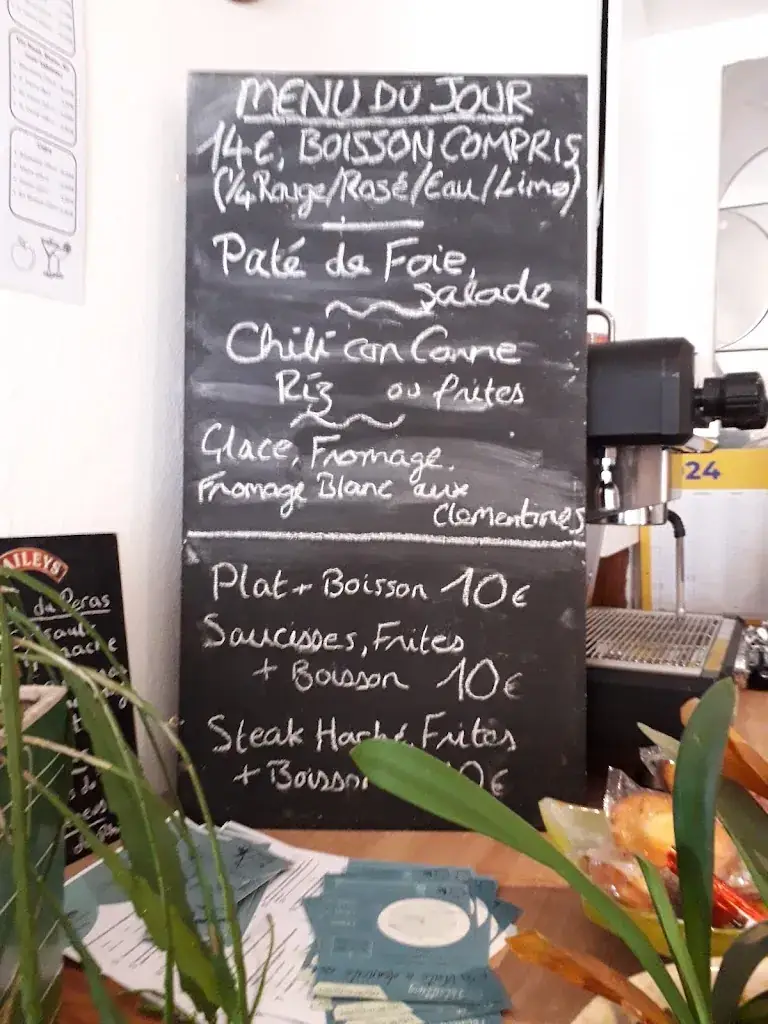 MENU DU JOUR
14€, BOISSON COMPRIS
(1/4 Rouge/Rosé/Eau/Limo)
Paté de Foie,
salade
Chili con Carne
Riz ou frites
Glace, Fromage.
Fromage Blanc aux
Clementines
Plat + Boisson 10€
Saucisses, Frites
+ Boisson 10€
Steak Haché, Frites
+ Boisson 10€
AILEYS
24